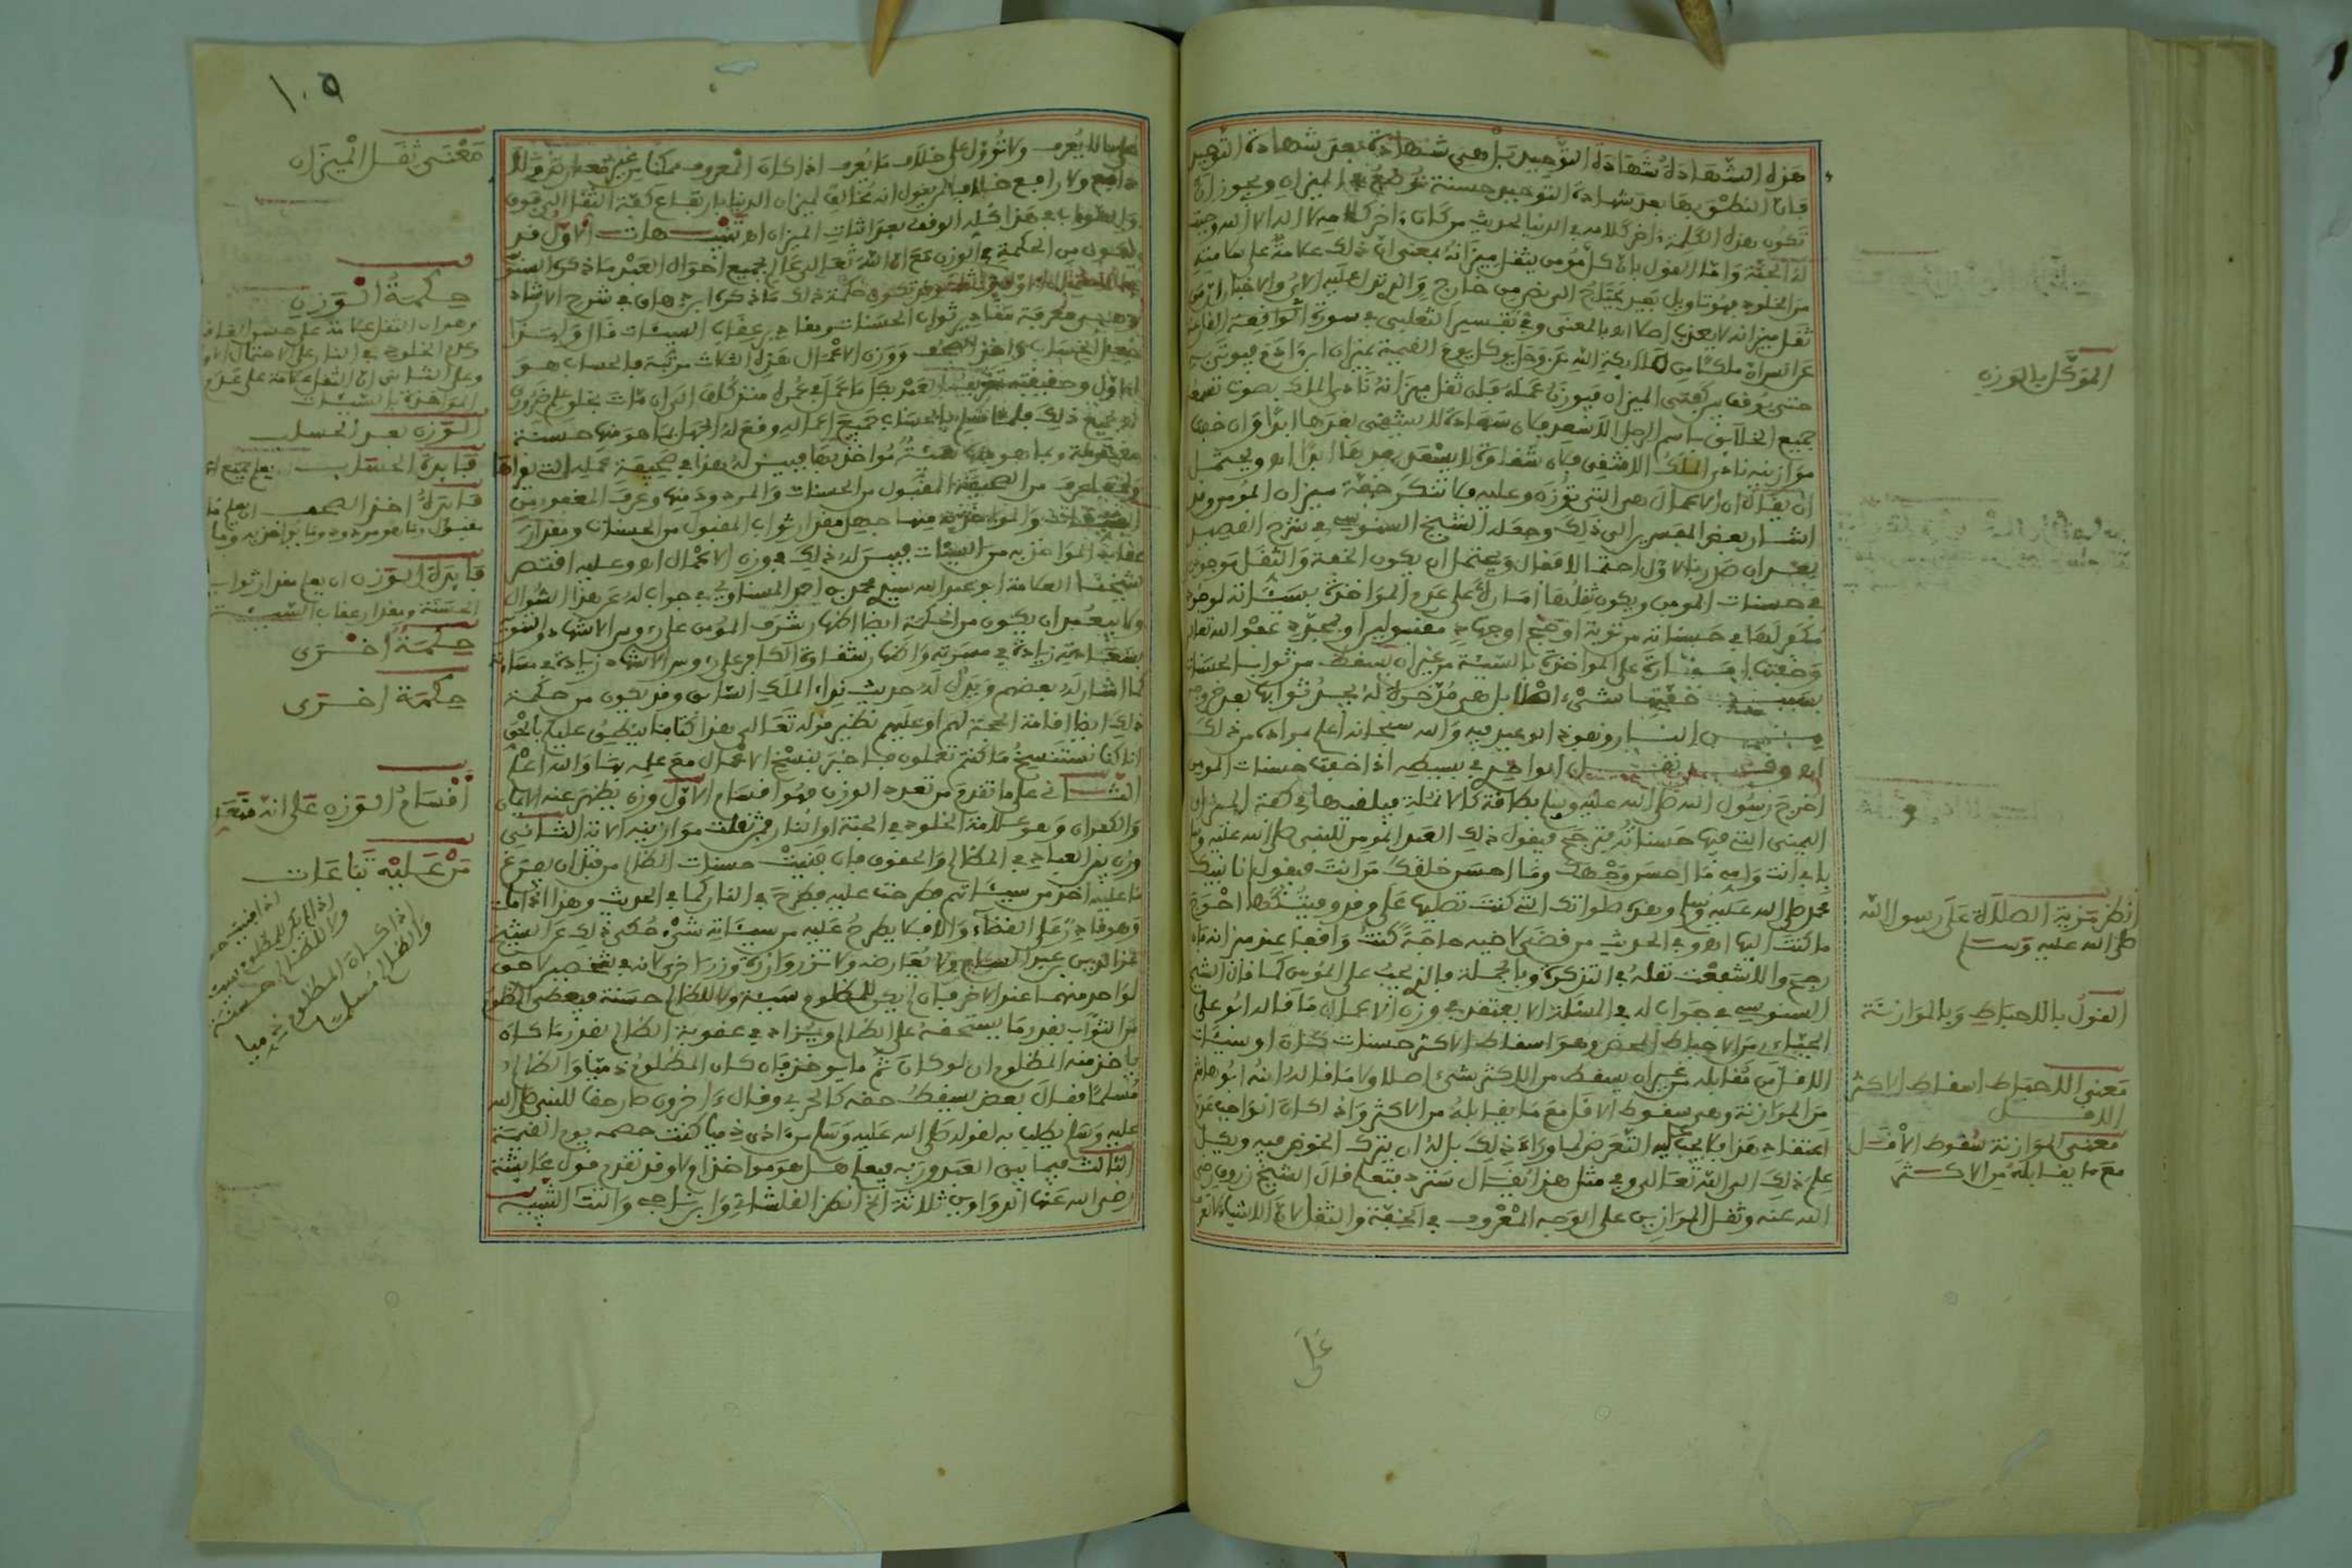 هذه الشهادة شهادة التوحيد بل هي شهادة بعد شهادة التوحيد
فان النطق بها بعد شهادة التوحيد حسنة توضع في الميزان ويجوز ان
تكون هذه الكلمة اخر كلامه في الدنيا لحديث من كان اخر كلامه لا اله الا الله وجبت
له الجنة واما القول بان كل مومن يثقل ميزانه بمعنى ان ذلك علامة على سلامته
من الخلود فهو تاويل بعيد يحتاج الى نص من خارج والذي تدل عليه الاي والاخبار ان من
ثقل ميزانه لا يعذب اصلا اه بالمعنى وفي تفسير الثعلبي في سورة الواقعة
ملكا من ملائكة الله عز وجل يوكل يوم القيمة بميزان ابن ادم فيوتى به
حتى يوقف بين كفتي الميزان فيوزن عمله فان ثقل ميزانه نادى الملك بصوت
جميع الخلائق باسم الرجل الا سعد فلان سعادة لا يشقى بعدها ابدا وان خفت
موازينه نادى الملك الا شقي فلان شقاوة لا يسعد بعدها ابدا اه ويحتمل
ان يقال ان الاعمال هي التي توزن وعليه فلا تنكر خفة ميزان المومن وقد
اشار بعض المفسرين الى ذلك وجعله الشيخ السنوسي في شرح القصيد
بعد ان صدر بالاول احتمالا فقال ويحتمل ان يكون الخفة والثقل موجودين
في حسنات المومن ويكون ثقلها امارة على عدم المواخذة بسيئاته لوجود
مكفر لها في حسناته من توبة او حج او جهاد مقبولين او لمجرد عفو الله تعالى
وخفتها امارة على المواخذة بالسيئة من غير ان يسقط من ثواب الحسنات
بسبب خفتها شيء اصلا بل هي مدخرة له يجد ثوابها بعد خروجه
من النار ونفوذ الوعيد فيه والله سبحانه اعلم بمراده من ذلك
اه وقد نقل الواحدي في بسيطه اذا خفت حسنات المومن
اخرج رسول الله صلى الله عليه وسلم بطاقة كالانملة فيلقيها في كفة الميزان
اليمنى التي فيها حسناته فترجح فيقول ذلك العبد المومن للنبي صلى الله عليه وسلم
بابي انت وامي ما احسن وجهك وما احسن خلقك من انت فيقول انا نبيك
محمد صلى الله عليه وسلم وهذه صلواتك التي كنت تصليها علي وقد وفيتكها احوج
ما كنت اليها اه وفي الحديث من قضى لاخيه حاجة كنت واقفا عند ميزانه فان
رجح والا شفعت نقله في التذكرة وبالجملة فالذي يجب على المومن كما قال الشيخ
السنوسي في جواب له في المسئلة الا يعتقد في وزن الاعمال ما قاله ابو علي
الجبائي من الاحباط المحض وهو اسقاط الاكثر حسنات كان او سيئات
الاقل من مقابله من غير ان يسقط من الاكثر شيء اصلا ولا ما قاله ابنه ابو هاشم
من الموازنة وهي سقوط الاقل مع ما يقابله من الاكثر واذا كان الواجب عدم
اعتقاد هذا فلا يجب عليه التعرض لما وراء ذلك بل له ان يترك الخوض فيه ويكل
علم ذلك الى الله تعالى وفي مثل هذا يقال سترد فتعلم قال الشيخ زروق رضي
الله عنه وثقل الموازين على الوجه المعروف في الخفة والثقل لان الاشياء
الموكل بالوزن
انظر مزية الصلاة على رسول الله
صلى الله عليه وسلم
القول بالاحباط وبالموازنة
معنى الاحباط اسقاط الاكثر
الاقل
معنى الموازنة سقوط الاقل
مع ما يقابله من الاكثر
على
١٠٥
على ما لا يعرف ولا تؤول على خلاف ما يعرف اذا كان المعروف ممكنا من غير
دافع ولا رافع خلافا لمن يقول انه مخالف لميزان الدنيا بارتفاع كفة الثقل الى فوق
والصواب في هذا كله الوقف بعد اثبات الميزان اه تنبيهات الاول قد
يكون من الحكمة في الوزن مع ان الله تعالى عالم بجميع احوال العبد ما ذكره السنوسي
تكون حكمة ذلك ما ذكره ابن دهاق في شرح الارشاد
وهي معرفة مقادير ثواب الحسنات ومقادير عقاب السيئات قال
الحساب واخذ الصحف ووزن الاعمال هذه الثلاث مرتبة فالحساب هو
الاول وحقيقته تعريف العبد بجل ما عمل في عمره منذ كلف الى ان مات بخلق علم ضروري
له بجميع ذلك فلما علم بالحساب جميع اعماله وقع له الجهل بما هو منها حسنة
مقبولة وبما هو منها سيئة مواخذ بها فيبين له هذا في صحيفة عمله التي يراها
المقبول من الحسنات والمردود منها وعرف المغفور من
السيئات والمواخذ به منها جهل مقدار ثواب المقبول من الحسنات ومقدار
عقاب المواخذ به من السيئات فيبين له ذلك في وزن الاعمال اه وعليه اقتصر
شيخنا العلامة ابو عبد الله سيدي محمد بن احمد المسناوي في جواب له عن هذا السؤال
ولا يبعد ان يكون من الحكمة ايضا اظهار شرف المؤمن على رءوس الاشهاد والتنويه
بسعادته زيادة في مسرته واظهار شقاوة الكافر على رءوس الاشهاد زيادة في
كما اشار له بعضهم ويدل له حديث نداء الملك السابق وقد يكون من حكمة
ذلك ايضا اقامة الحجة لهم او عليهم نظير قوله تعالى هذا كتابنا ينطق عليكم بالحق
انا كنا نستنسخ ما كنتم تعملون فاخبر بنسخ الاعمال مع علمه بها والله اعلم
الثاني على ما تقدم من تعدد الوزن فهو اقسام الاول وزن يظهر عنه الايمان
والكفران وهو علامة الخلود في الجنة او النار فمن ثقلت موازينه الاية الثاني
وزن بين العباد في المظالم والحقوق فان فنيت حسنات الظالم من قبل ان يفرغ
ما عليه اخذ من سيئاتهم فطرحت عليه فطرح في النار كما في الحديث وهذا اذا مات
وهو قادر على القضاء والا فلا يطرح عليه من سيئاته شيء حكى ذلك عن الشيخ
عز الدين بن عبد السلام ولا يعارضه ولا تزر وازرة وزر اخرى لانه في شخصين لا حق
لواحد منهما عند الاخر فان لم يكن للمظلوم سيئة ولا للظالم حسنة فيعطى المظلوم
من الثواب بقدر ما يستحقه على الظالم ويزاد في عقوبة الظالم بقدر ما كان
ياخذ منه المظلوم ان لو كان ثم ما يوخذ فان كان المظلوم ذميا والظالم
مسلما فقال بعض يسقط حقه كالحربي وقال اخرون صار حقا للنبي صلى الله
عليه وسلم يطلب به لقوله صلى الله عليه وسلم من اذى ذميا كنت خصمه يوم القيمة
الثالث فيما بين العبد وربه فيعلم هل هو مواخذ ام لا وقد تقدم قول عائشة
رضي الله عنها الدواوين ثلاثة الخ انظر القلشاني وابن ناجي والتتائي
معنى ثقل الميزان
حكمة الوزن
الوزن بعد الحساب
فايدة الحساب
فايدة اخذ الصحف
فايدة الوزن ان يعلم مقدار ثواب
الحسنة ومقدار عقاب السيئة
حكمة اخرى
حكمة اخرى
اقسام الوزن على انه
من عليه تباعات